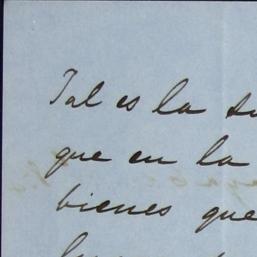 Tal es la su
que en la
bienes que